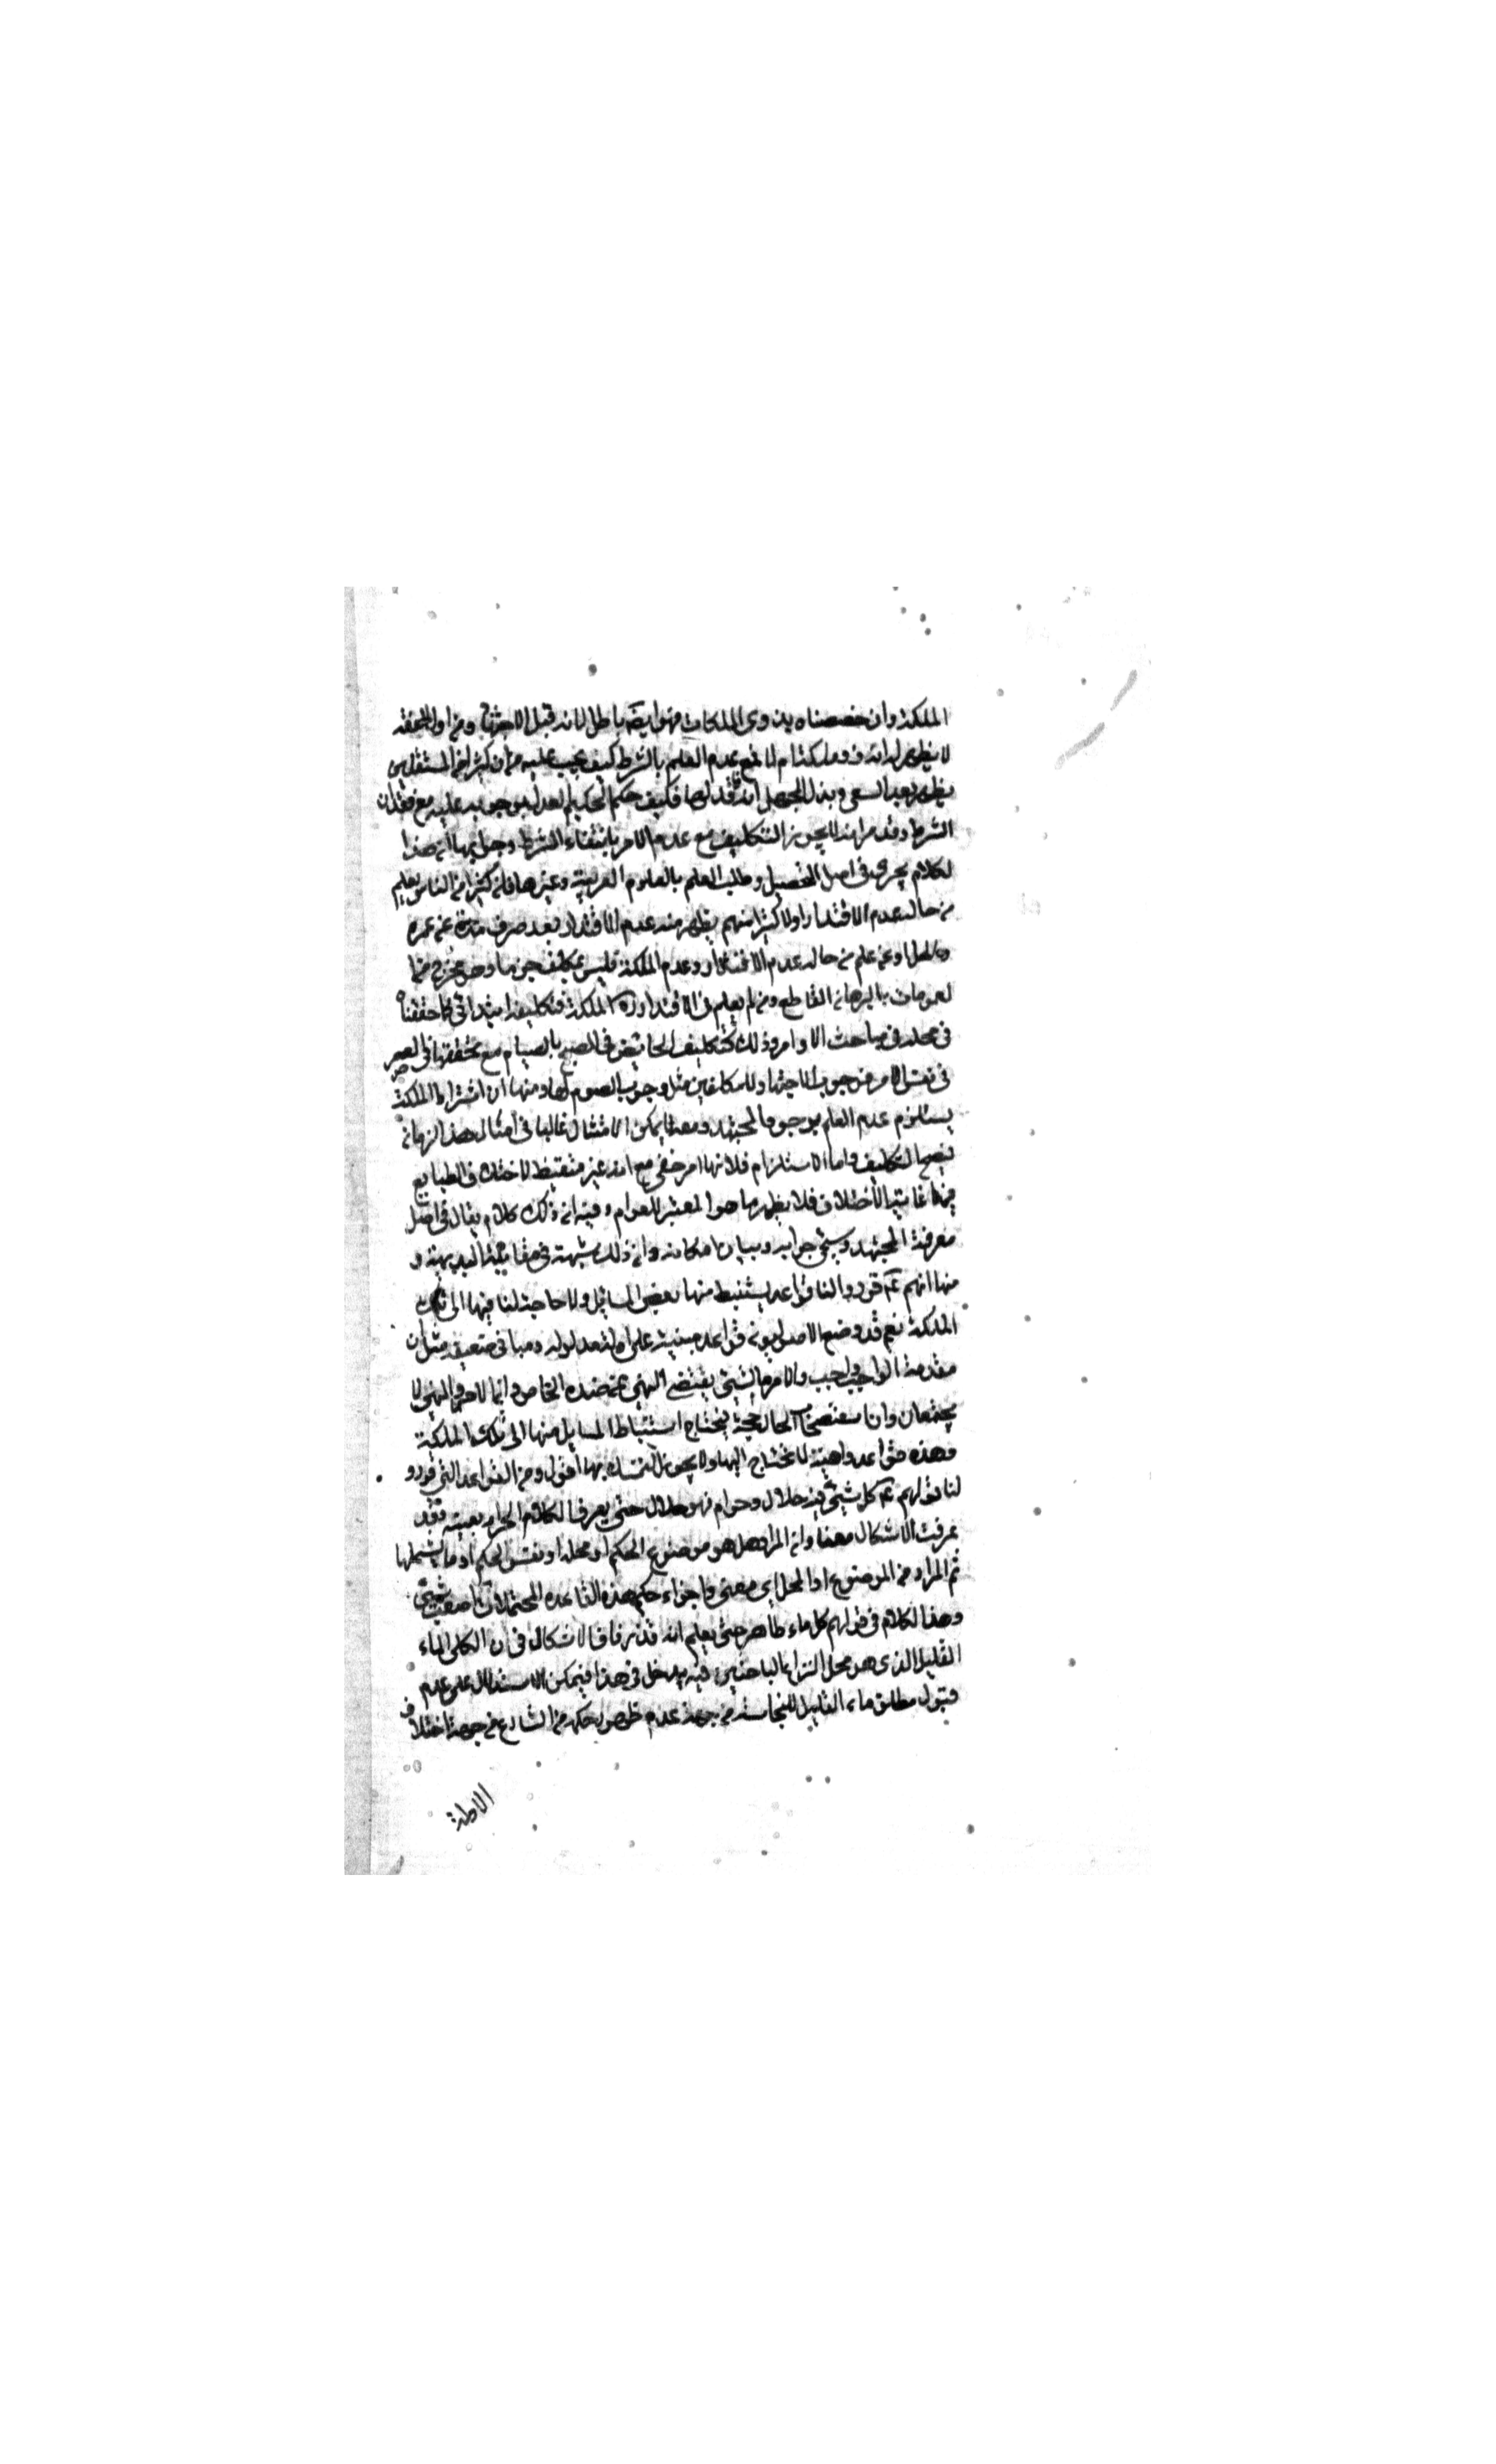 الملكة وان خصصناه بذوى الملكات فهو ايضا باطل لانه قبل الاجتهاد ومزاولة الفقه
لا يظهر له انه ذو ملكة ام لا فمع عدم العلم بالشرط كيف يجب عليه مع ان كثيرا من المشتغلين
يظهر بعد السعى وبذل الجهد انه فاقد لها فكيف حكم الحكيم العدل بوجوبه عليه مع فقدان
الشرط وقد مر انه لا يجوز التكليف مع عدم الامر بانتفاء الشرط وجوابها ان هذا
الكلام يجرى فى اصل التحصيل وطلب العلم بالعلوم العربية وغيرها فان كثيرا من الناس يعلم
من حاله عدم الاقتدار اولا وكثيرا منهم يظهر منه عدم الاقتدار بعد صرف مدة من عمره
والحل ان من علم من حاله عدم الاقتدار وعدم الملكة فليس بمكلف جزما وهو مخرج من
العمومات بالبرهان القاطع ومن لم يعلم الاقتدار والملكة فتكليفه ابتدائى كما حققناه
فى محله فى مباحث الاوامر وذلك كتكليف الحائض فى الصبح بالصيام مع تحققها فى العصر
فى نفس الامر فوجوب الاجتهاد للمكلفين مثل وجوب الصوم لها ومنها ان اشتراط الملكة
يستلزم عدم العلم بوجود المجتهد ومعه لا يمكن الامتثال غالبا فى امثال هذا الزمان
فيقبح التكليف واما الاستلزام فلانها امر خفى مع انه غير منضبط لاختلاف الطبايع
فيها غاية الاختلاف فلا يظهر ما هو المعتبر للعوام وفيه ان ذلك كلام يقال فى اصل
معرفة المجتهد وسيجئ جوابه وبيان امكانه وان ذلك شبهة فى مقابلة البديهة و
منها انهم ع قرروا لنا قواعد يستنبط منها بعض المسائل ولا حاجة لنا فيها الى تلك
الملكة نعم قد وضع الاصوليون قواعد مبنية على ادلة مدلوله ومبانى ضعيفة مثل ان
مقدمة الواجب واجب والامر بالشئ يقتضى النهى عن ضده الخاص وان الامر والنهى لا
يجتمعان وان استصحاب الحال حجة يحتاج استنباط المسايل منها الى تلك الملكة
وهذه قواعد واهية لا يحتاج اليها ولا يجوز التمسك بها اقول ومن القواعد التى قرروا
لنا قولهم ع كل شئ فيه حلال وحرام فهو حلال حتى يعرف الكلام الحرام بعينه وقد
عرفت الاشكال معنا وان المراد هل هو موضوع الحكم او محله او نفس الحكم او ما يشملها
ثم المراد من الموضوع او المحل اى معنى واجراء حكم هذه القاعده المحتملات اصعب شئ
وهذا الكلام فى قولهم كل ماء طاهر حتى يعلم انه قذر فان الاشكال فى ان الكلى الماء
القليل الذى هو محل النزاع للباحثين فيه يدخل فى هذا فيمكن الاستدلال على عدم
قبول مطلق ماء القليل للنجاسة من جهة عدم ظهور حكمه من الشارع من جهة اختلاف
الادلة